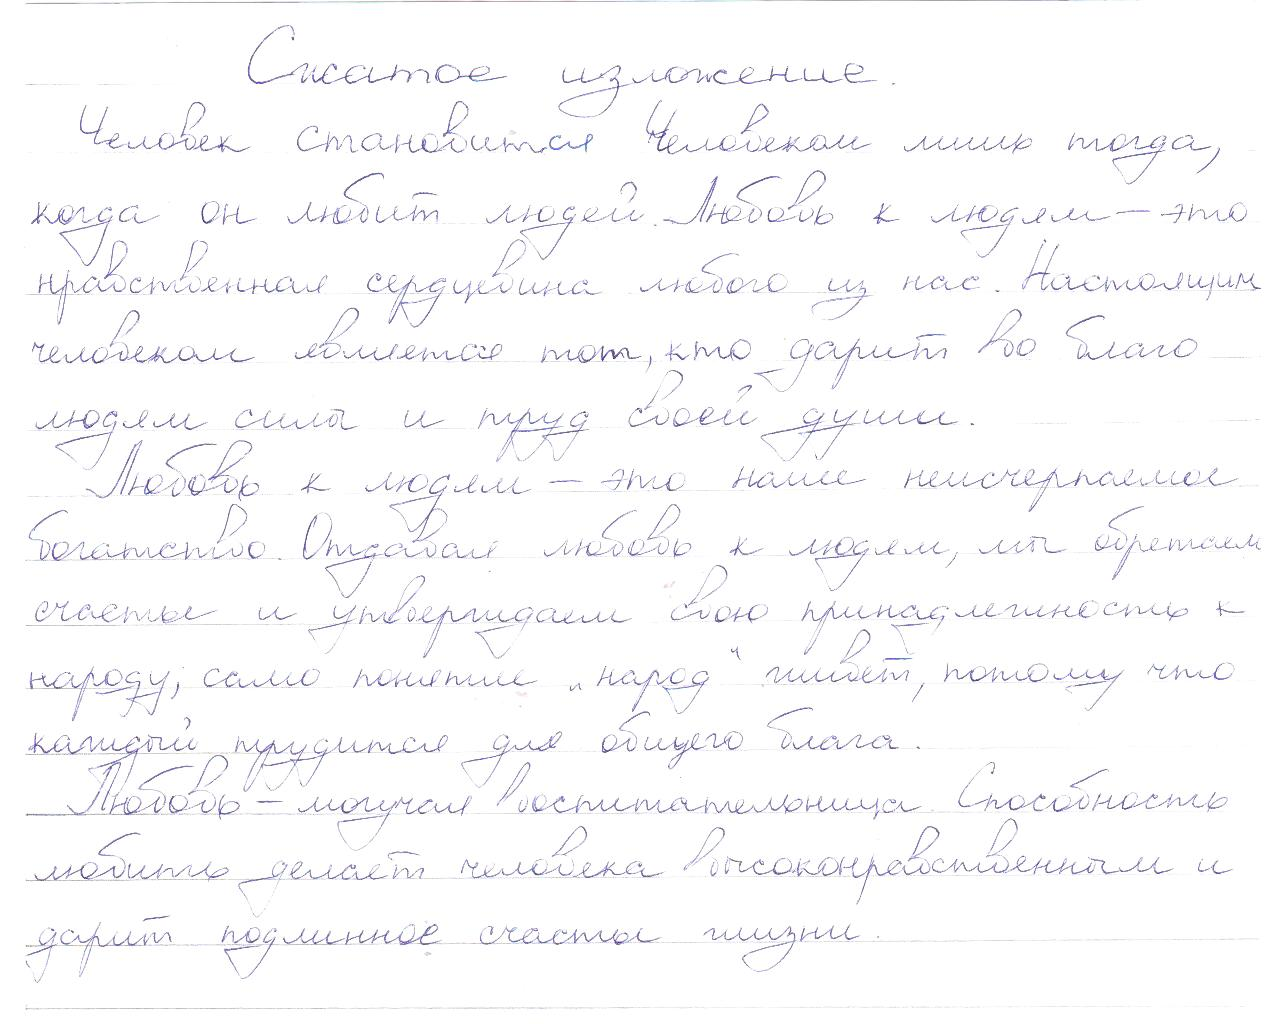 Сжатое изложение.
Человек становится Человеком лишь тогда,
когда он любит людей. Любовь к людям – это
нравственная сердцевина любого из нас. Настоящим
человеком является тот, кто дарит во благо
людям силы и труд своей души.
Любовь к людям – это наше неисчерпаемое
богатство. Отдавая любовь к людям, мы обретаем
счастье и утверждаем свою принадлежность к
народу; само понятие „народ“ живёт, потому что
каждый трудится для общего блага.
Любовь – могучая воспитательница. Способность
любить делает человека высоконравственным и
дарит подлинное счастье жизни.